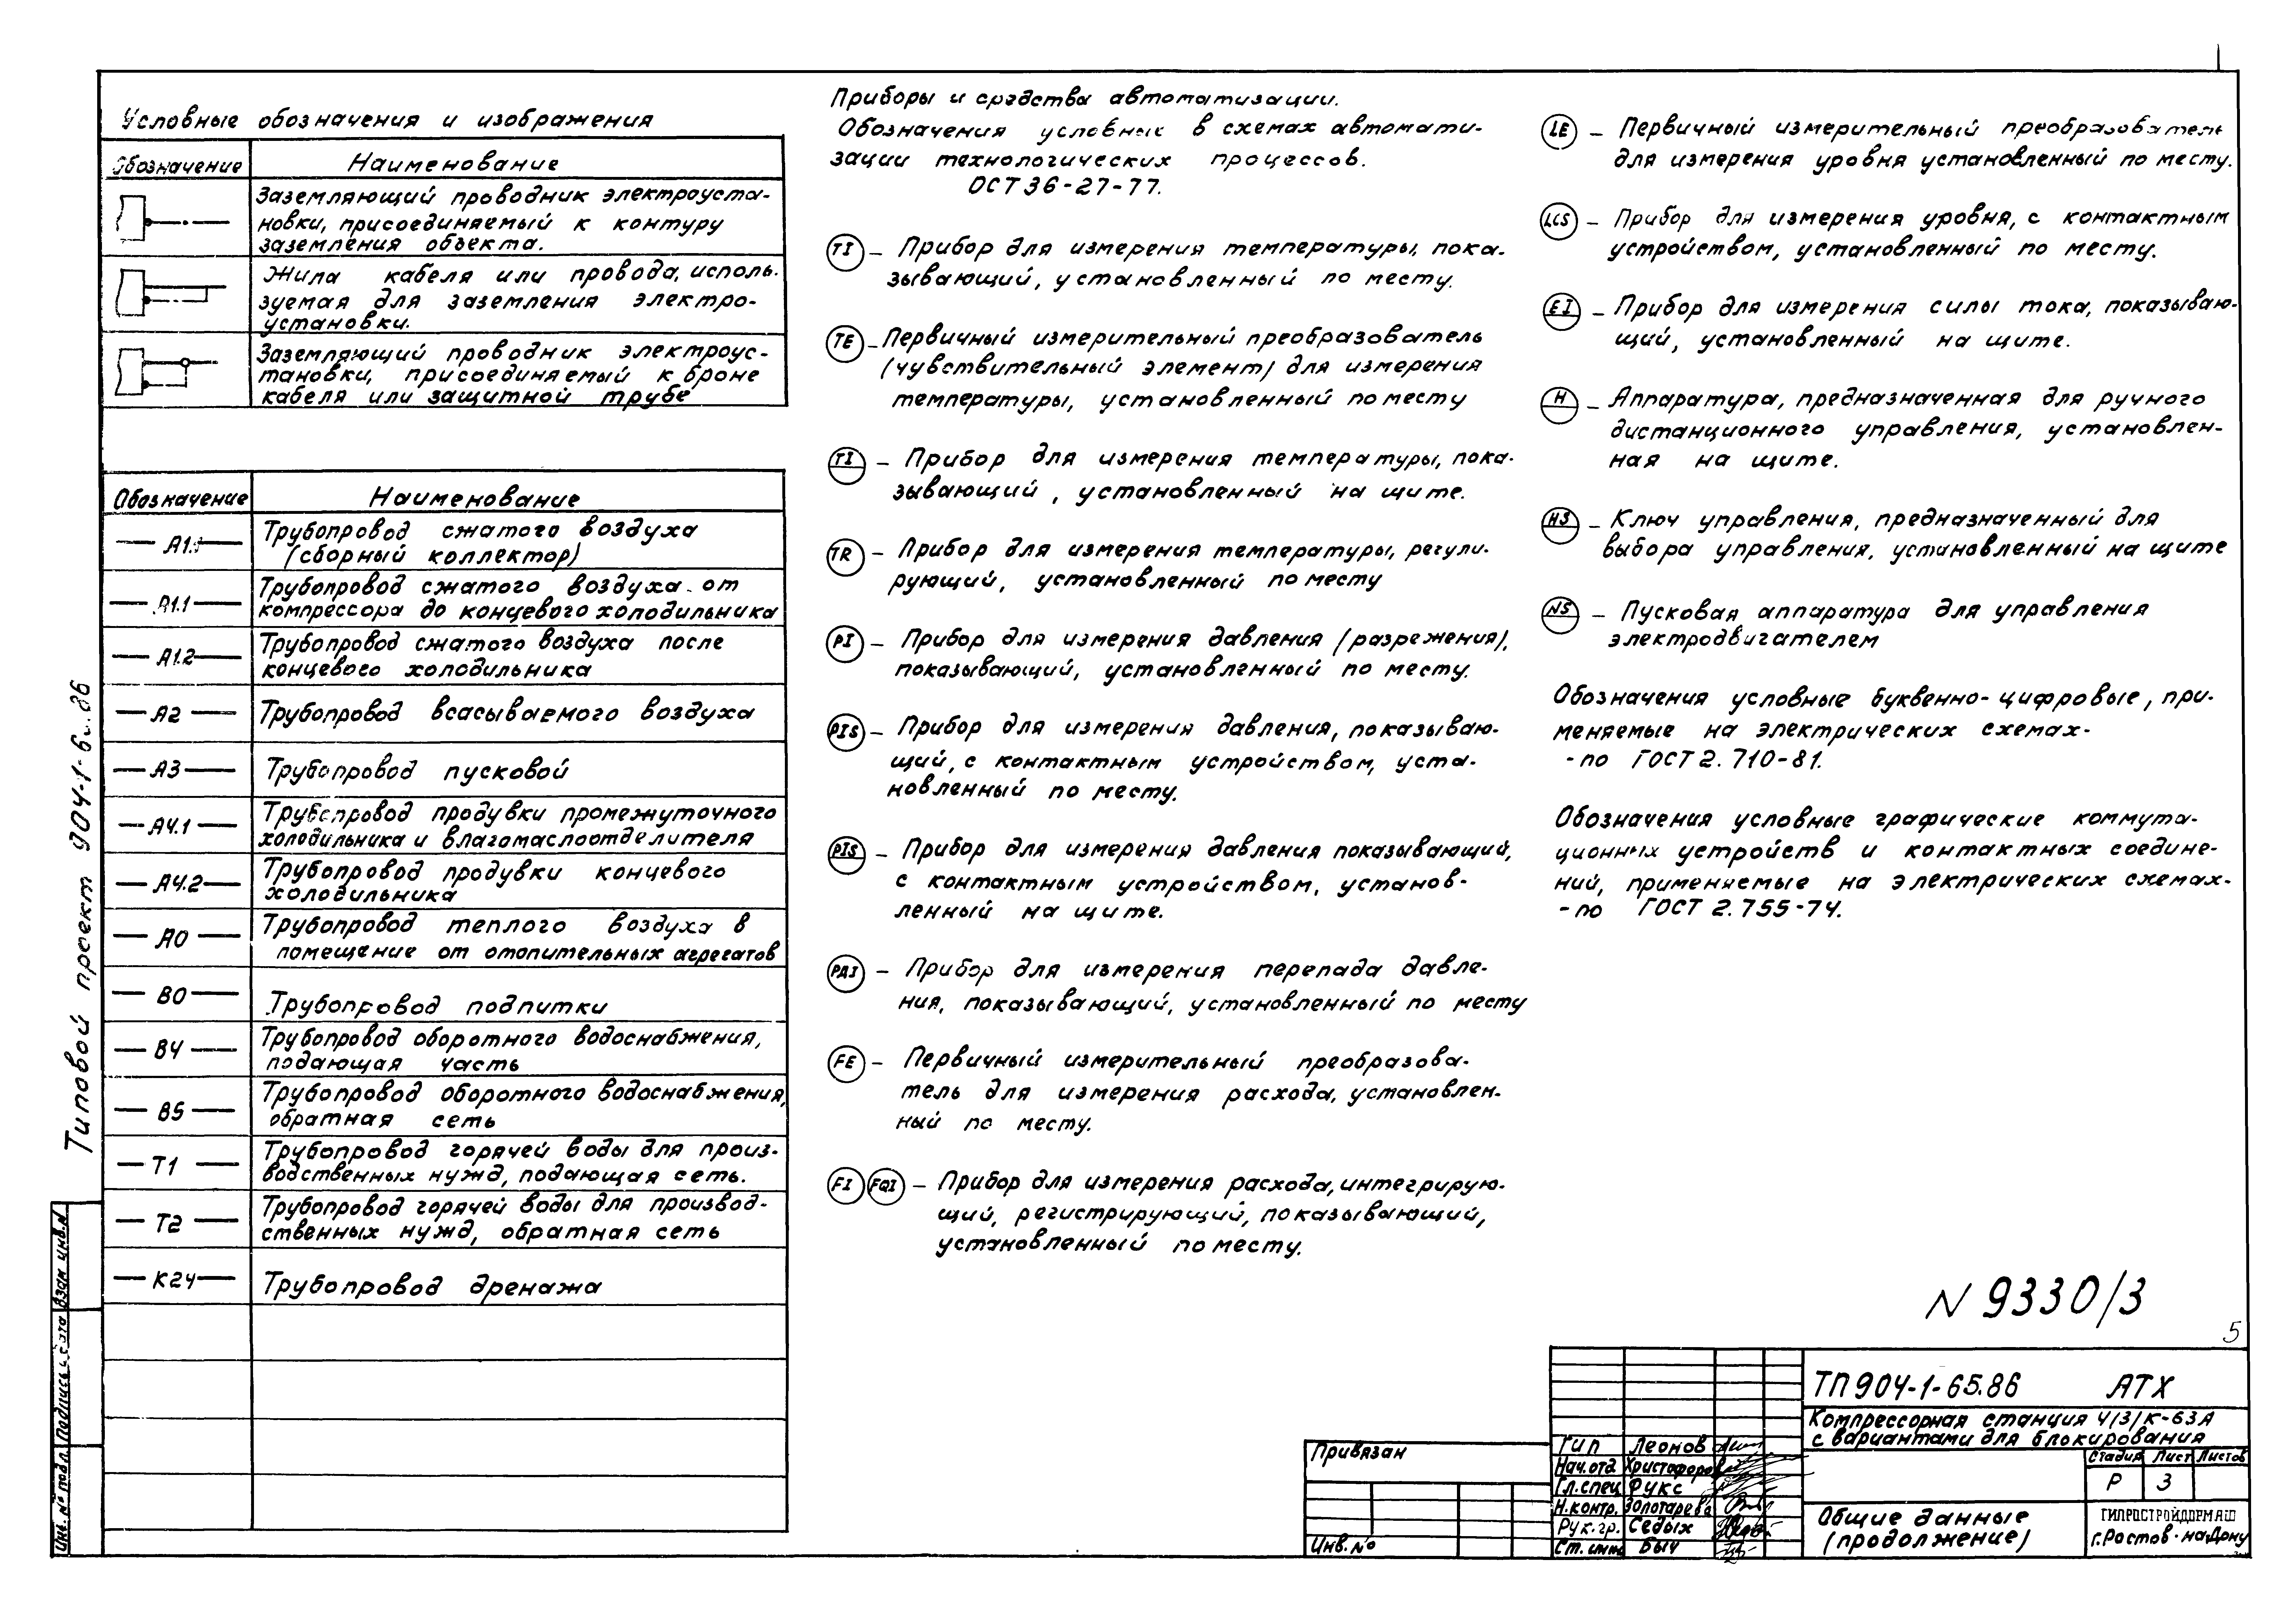 Условные обозначения и изображения
Обозначение Наименование
Заземляющий проводник электроуста-
новки, присоединяемый к контуру
заземления объекта.
Жила кабеля или провода, исполь-
зуемая для заземления электро-
установки.
Заземляющий проводник электроус-
тановки, присоединяемый к броне
кабеля или защитной трубе
Обозначение Наименование
Трубопровод сжатого воздуха
(сборный коллектор)
А1.1 Трубопровод сжатого воздуха от
компрессора до концевого холодильника
А1.2 Трубопровод сжатого воздуха после
концевого холодильника
А2 Трубопровод всасываемого воздуха
А3 Трубопровод пусковой
А4.1 Трубопровод продувки промежуточного
холодильника и влагомаслоотделителя
А4.2 Трубопровод продувки концевого
холодильника
А0 Трубопровод теплого воздуха в
помещение от отопительных агрегатов
В0 Трубопровод подпитки
В4 Трубопровод оборотного водоснабжения,
подающая часть
В5 Трубопровод оборотного водоснабжения,
обратная сеть
Т1 Трубопровод горячей воды для произ-
водственных нужд, подающая сеть.
Т2 Трубопровод горячей воды для производ-
ственных нужд, обратная сеть
К24 Трубопровод дренажа
Приборы и средства автоматизации.
Обозначения условные в схемах автомати-
зации технологических процессов.
ОСТ 36-27-77.
TI – Прибор для измерения температуры, пока-
зывающий, установленный по месту.
TE – Первичный измерительный преобразователь
(чувствительный элемент) для измерения
температуры, установленный по месту
TI – Прибор для измерения температуры, пока-
зывающий, установленный на щите.
TR – Прибор для измерения температуры, регули-
рующий, установленный по месту
PI – Прибор для измерения давления (разрежения),
показывающий, установленный по месту.
PIS – Прибор для измерения давления, показываю-
щий, с контактным устройством, уста-
новленный по месту.
PIS – Прибор для измерения давления показывающий,
с контактным устройством, установ-
ленный на щите.
PdI – Прибор для измерения перепада давле-
ния, показывающий, установленный по месту
FE – Первичный измерительный преобразова-
тель для измерения расхода, установлен-
ный по месту.
FI FQI – Прибор для измерения расхода, интегрирую-
щий, регистрирующий, показывающий,
установленный по месту.
LE – Первичный измерительный преобразователь
для измерения уровня установленный по месту.
LCS – Прибор для измерения уровня, с контактным
устройством, установленный по месту.
EI – Прибор для измерения силы тока, показываю-
щий, установленный на щите.
H – Аппаратура, предназначенная для ручного
дистанционного управления, установлен-
ная на щите.
HS – Ключ управления, предназначенный для
выбора управления, установленный на щите
NS – Пусковая аппаратура для управления
электродвигателем
Обозначения условные буквенно-цифровые, при-
меняемые на электрических схемах-
- по ГОСТ 2.710-81.
Обозначения условные графические коммута-
ционных устройств и контактных соедине-
ний, применяемые на электрических схемах-
- по ГОСТ 2.755-74.
N 9330/3
5
Типовой проект 904-1-
Взам инв.N
Подпись и дата
Инв. № подл.
Привязан
Инв. №
ГИП Леонов
Нач.отд Христофоров
Гл.спец Фукс
Н.контр. Золотарева
Рук.гр. Седых
Ст. инж Быч
ТП 904-1-65.86 АТХ
Компрессорная станция 4(3)К-63А
с вариантами для блокирования
Стадия Лист Листов
Р 3
Общие данные
(продолжение)
ГИПРОСТРОЙДОРМАШ
г.Ростов-на-Дону